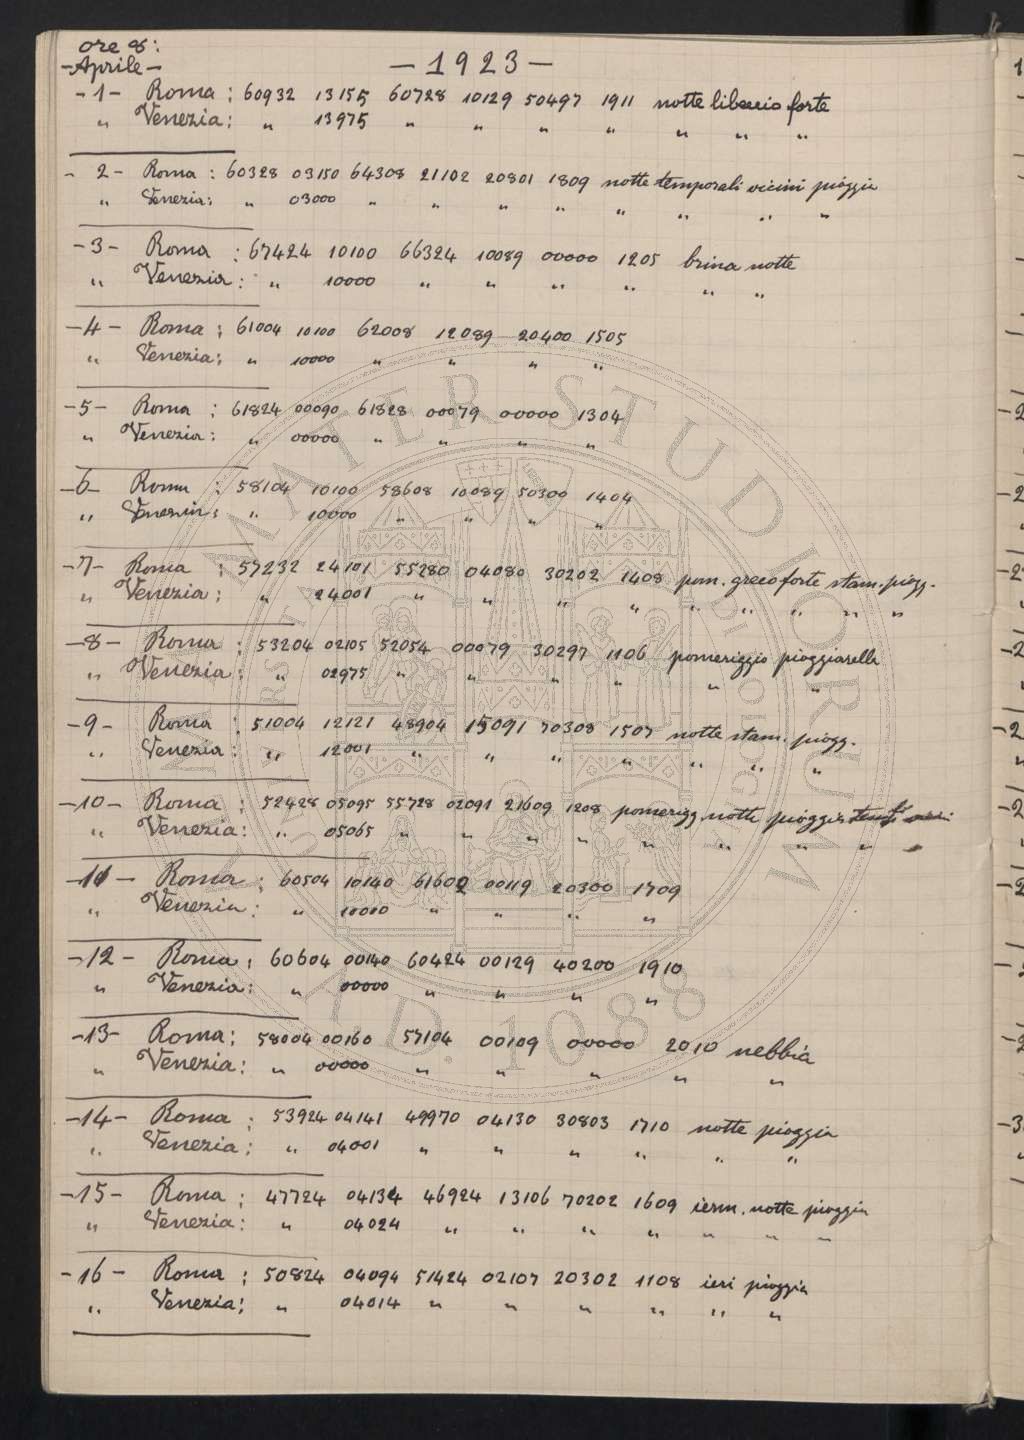 ore 8:
-Aprile-
- 1923 -
- 1 - Roma : 60932 13155 60728 10129 50497 1911 notte libeccio forte
" Venezia : " 13975 " " " " " " "
- 2 - Roma : 60328 03150 64308 21102 20801 1809 notte temporali vicini pioggia
" Venezia : " 03000 " " " " " " " "
- 3 - Roma : 67424 10100 66324 10089 00000 1205 brina notte
" Venezia : " 10000 " " " " " "
- 4 - Roma : 61004 10100 62008 12089 20400 1505
" Venezia : " 10000 " " " "
- 5 - Roma : 61824 00090 61828 00079 00000 1304
" Venezia : " 00000 " " " "
- 6 - Roma : 58104 10100 58608 10089 50300 1404
" Venezia : " 10000 " " " "
- 7 - Roma : 57232 24101 55280 04080 30202 1408 pom. greco forte stam. piogg.
" Venezia : " 24001 " " " " " " " " "
- 8 - Roma : 53204 02105 52054 00079 30297 1106 pomeriggio pioggiarella
" Venezia : " 02975 " " " " " "
- 9 - Roma : 51004 12121 48904 15091 70308 1507 notte stam. piogg.
" Venezia : " 12001 " " " " " " "
- 10 - Roma : 52428 05095 55728 02091 21609 1208 pomerigg. notte pioggia
" Venezia : " 05065 " " " " " " " " "
- 11 - Roma : 60504 10140 61602 00119 20300 1709
" Venezia : " 10000 " " " "
- 12 - Roma : 60604 00140 60424 00129 40200 1910
" Venezia : " 00000 " " " "
- 13 - Roma : 58004 00160 57104 00109 00000 2010 nebbia
" Venezia : " 00000 " " " " "
- 14 - Roma : 53924 04141 49970 04130 30803 1710 notte pioggia
" Venezia : " 04001 " " " " " "
- 15 - Roma : 47724 04134 46924 13106 70202 1609 notte pioggia
" Venezia : " 04024 " " " " " " "
- 16 - Roma : 50824 04094 51424 02107 20302 1108 ieri pioggia
" Venezia : " 04014 " " " " " "
ALMA MATER STUDIORUM
A.D. 1088